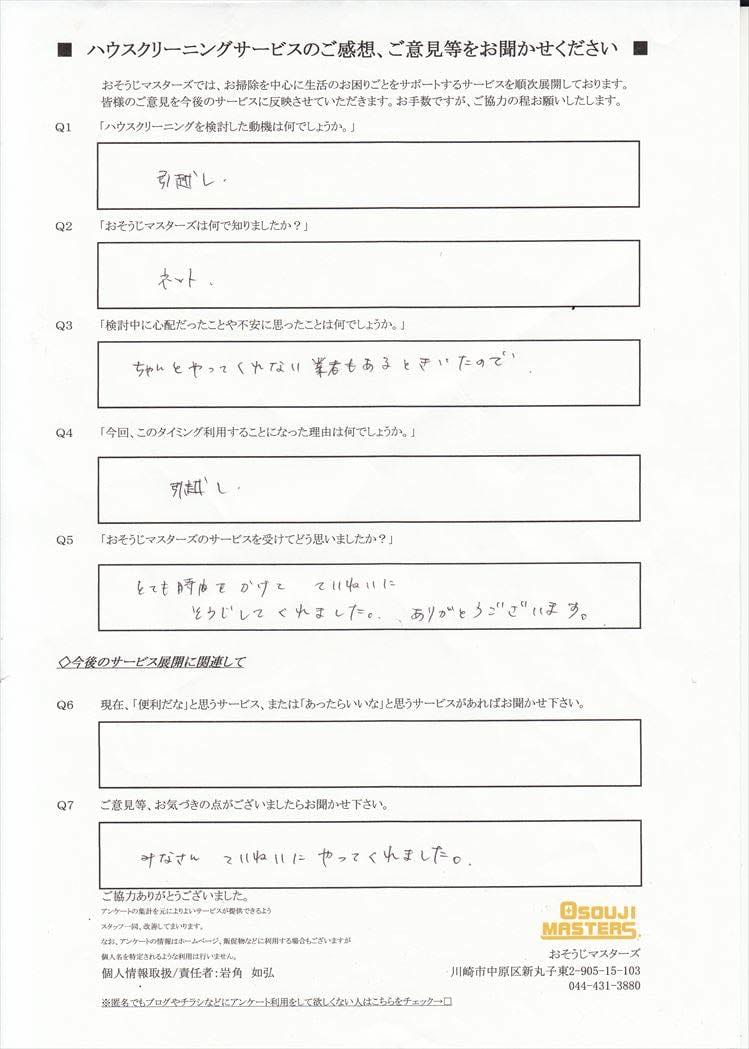 ■ ハウスクリーニングサービスのご感想、ご意見等をお聞かせください ■
おそうじマスターズでは、お掃除を中心に生活のお困りごとをサポートするサービスを順次展開しております。
皆様のご意見を今後のサービスに反映させていただきます。お手数ですが、ご協力の程お願いしたします。
Q1 「ハウスクリーニングを検討した動機は何でしょうか。」
引越し.
Q2 「おそうじマスターズは何で知りましたか？」
ネット.
Q3 「検討中に心配だったことや不安に思ったことは何でしょうか。」
ちゃんとやってくれない業者もあるときいたので.
Q4 「今回、このタイミング利用することになった理由は何でしょうか。」
引越し.
Q5 「おそうじマスターズのサービスを受けてどう思いましたか？」
とても時間をかけて ていねいに
そうじしてくれました。ありがとうございます。
◇今後のサービス展開に関連して
Q6 現在、「便利だな」と思うサービス、または「あったらいいな」と思うサービスがあればお聞かせ下さい。
Q7 ご意見等、お気づきの点がございましたらお聞かせ下さい。
みなさん ていねいに やってくれました。
ご協力ありがとうございました。
アンケートの集計を元によりよいサービスが提供できるよう
スタッフ一同、改善してまいります。
なお、アンケートの情報はホームページ、販促物などに利用する場合もございますが
個人名を特定されるような利用は行いません。
個人情報取扱/責任者：岩角 如弘
※匿名でもブログやチラシなどにアンケート利用をして欲しくない人はこちらをチェック→□
OSOUJI
MASTERS
おそうじマスターズ
川崎市中原区新丸子東2-905-15-103
044-431-3880